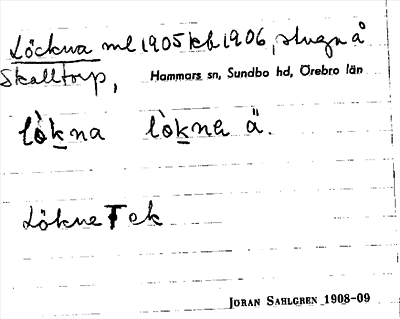 Löckna ml 1905 kb 1906, stuga å
Skalltorp, Hammars sn, Sundbo hd, Örebro län
lòkna lòkna ä.
Lökne T ek
JÖRAN SAHLGREN 1908-09